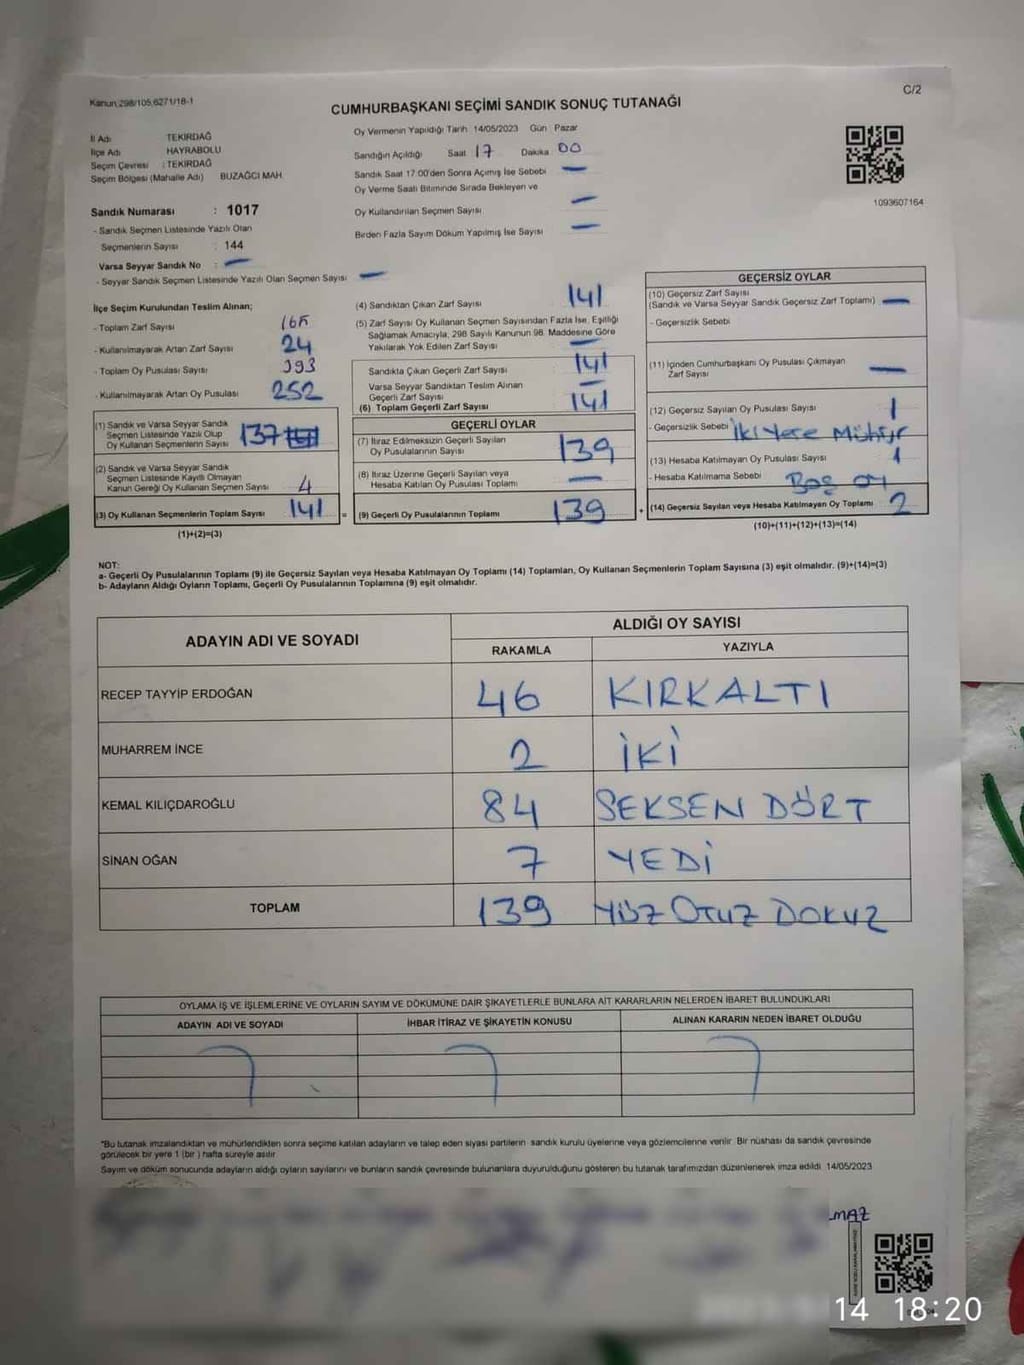 Kanun;298/105,6271/18-1
C/2
CUMHURBAŞKANI SEÇİMİ SANDIK SONUÇ TUTANAĞI
İl Adı TEKİRDAĞ
İlçe Adı HAYRABOLU
Seçim Çevresi : TEKİRDAĞ
Seçim Bölgesi (Mahalle Adı) BUZAĞCI MAH.
Sandık Numarası : 1017
- Sandık Seçmen Listesinde Yazılı Olan
Seçmenlerin Sayısı : 144
Varsa Seyyar Sandık No : —
- Seyyar Sandık Seçmen Listesinde Yazılı Olan Seçmen Sayısı —
Oy Vermenin Yapıldığı Tarih 14/05/2023 Gün Pazar
Sandığın Açıldığı Saat 17 Dakika 00
Sandık Saat 17:00'den Sonra Açımış İse Sebebi —
Oy Verme Saati Bitiminde Sırada Bekleyen ve
Oy Kullandırılan Seçmen Sayısı —
Birden Fazla Sayım Döküm Yapılmış İse Sayısı —
1093607164
İlçe Seçim Kurulundan Teslim Alınan;
- Toplam Zarf Sayısı
- Kullanılmayarak Artan Zarf Sayısı 24
- Toplam Oy Pusulası Sayısı 393
- Kullanılmayarak Artan Oy Pusulası 252
(1) Sandık ve Varsa Seyyar Sandık
Seçmen Listesinde Yazılı Olup
Oy Kullanan Seçmenlerin Sayısı 137
(2) Sandık ve Varsa Seyyar Sandık
Seçmen Listesinde Kayıtlı Olmayan
Kanun Gereği Oy Kullanan Seçmen Sayısı 4
(3) Oy Kullanan Seçmenlerin Toplam Sayısı 141 =
(1)+(2)=(3)
(4) Sandıktan Çıkan Zarf Sayısı 141
(5) Zarf Sayısı Oy Kullanan Seçmen Sayısından Fazla İse, Eşitliği
Sağlamak Amacıyla, 298 Sayılı Kanunun 98. Maddesine Göre
Yakılarak Yok Edilen Zarf Sayısı —
Sandıkta Çıkan Geçerli Zarf Sayısı 141
Varsa Seyyar Sandıktan Teslim Alınan
Geçerli Zarf Sayısı —
(6) Toplam Geçerli Zarf Sayısı 141
GEÇERLİ OYLAR
(7) İtiraz Edilmeksizin Geçerli Sayılan
Oy Pusulalarının Sayısı 139
(8) İtiraz Üzerine Geçerli Sayılan veya
Hesaba Katılan Oy Pusulası Toplamı —
(9) Geçerli Oy Pusulalarının Toplamı 139 +
GEÇERSİZ OYLAR
(10) Geçersiz Zarf Sayısı
(Sandık ve Varsa Seyyar Sandık Geçersiz Zarf Toplamı) —
- Geçersizlik Sebebi
(11) İçinden Cumhurbaşkanı Oy Pusulası Çıkmayan
Zarf Sayısı —
(12) Geçersiz Sayılan Oy Pusulası Sayısı 1
- Geçersizlik Sebebi İki Yere Mühür
(13) Hesaba Katılmayan Oy Pusulası Sayısı 1
- Hesaba Katılmama Sebebi Boş oy
(14) Geçersiz Sayılan veya Hesaba Katılmayan Oy Toplamı 2
(10)+(11)+(12)+(13)=(14)
NOT:
a- Geçerli Oy Pusulalarının Toplamı (9) ile Geçersiz Sayılan veya Hesaba Katılmayan Oy Toplamı (14) Toplamları, Oy Kullanan Seçmenlerin Toplam Sayısına (3) eşit olmalıdır. (9)+(14)=(3)
b- Adayların Aldığı Oyların Toplamı, Geçerli Oy Pusulalarının Toplamına (9) eşit olmalıdır.
ADAYIN ADI VE SOYADI ALDIĞI OY SAYISI
RAKAMLA YAZIYLA
RECEP TAYYİP ERDOĞAN 46 KIRKALTI
MUHARREM İNCE 2 İKİ
KEMAL KILIÇDAROĞLU 84 SEKSEN DÖRT
SİNAN OĞAN 7 YEDİ
TOPLAM 139 YÜZ OTUZ DOKUZ
OYLAMA İŞ VE İŞLEMLERİNE VE OYLARIN SAYIM VE DÖKÜMÜNE DAİR ŞİKAYETLERLE BUNLARA AİT KARARLARIN NELERDEN İBARET BULUNDUKLARI
ADAYIN ADI VE SOYADI İHBAR İTİRAZ VE ŞİKAYETİN KONUSU ALINAN KARARIN NEDEN İBARET OLDUĞU
*Bu tutanak imzalandıktan ve mühürlendikten sonra seçime katılan adayların ve talep eden siyasi partilerin sandık kurulu üyelerine veya gözlemcilerine verilir. Bir nüshası da sandık çevresinde
görülecek bir yere 1 (bir) hafta süreyle asılır.
Sayım ve döküm sonucunda adayların aldığı oyların sayılarını ve bunların sandık çevresinde bulunanlara duyurulduğunu gösteren bu tutanak tarafımızdan düzenlenerek imza edildi. 14/05/2023
MAZ
14 18:20